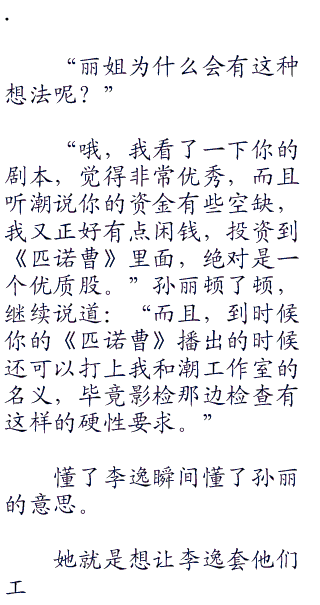 .
“丽姐为什么会有这种
想法呢？”
“哦，我看了一下你的
剧本，觉得非常优秀，而且
听潮说你的资金有些空缺，
我又正好有点闲钱，投资到
《匹诺曹》里面，绝对是一
个优质股。”孙丽顿了顿，
继续说道：“而且，到时候
你的《匹诺曹》播出的时候
还可以打上我和潮工作室的
名义，毕竟影检那边检查有
这样的硬性要求。”
懂了李逸瞬间懂了孙丽
的意思。
她就是想让李逸套他们
工